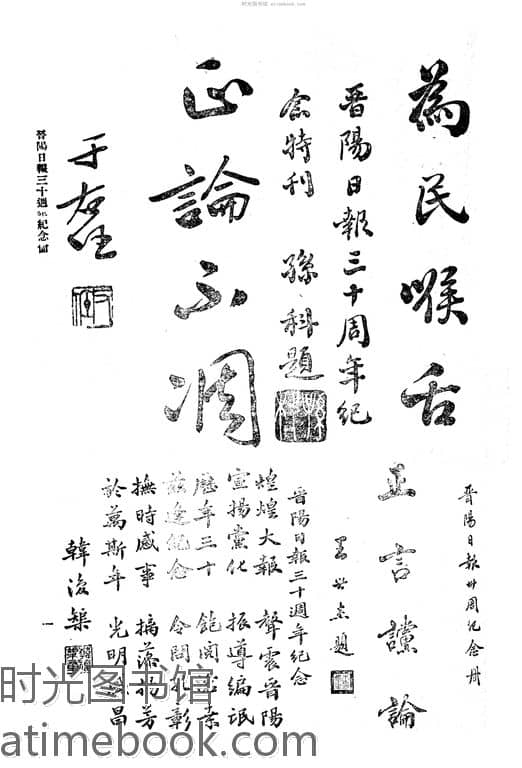 时光图书馆 www.atimebook.com
為民喉舌
晋陽日報三十周年紀
念特刊 孫科題
正論不凋
于右任
晉陽日報三十週年紀念
晋陽日報卅周紀念册
正言讜論
題
晋陽日報三十週年紀念
煌煌大報 聲震晋陽
宣揚黨化 振導編氓
歷年三十 飽閱
茲逢紀念 令聞孔彰
撫時感事 摛藻揚芳
於萬斯年 光明 昌
韓復榘
一
时光图书馆
atimebook.com